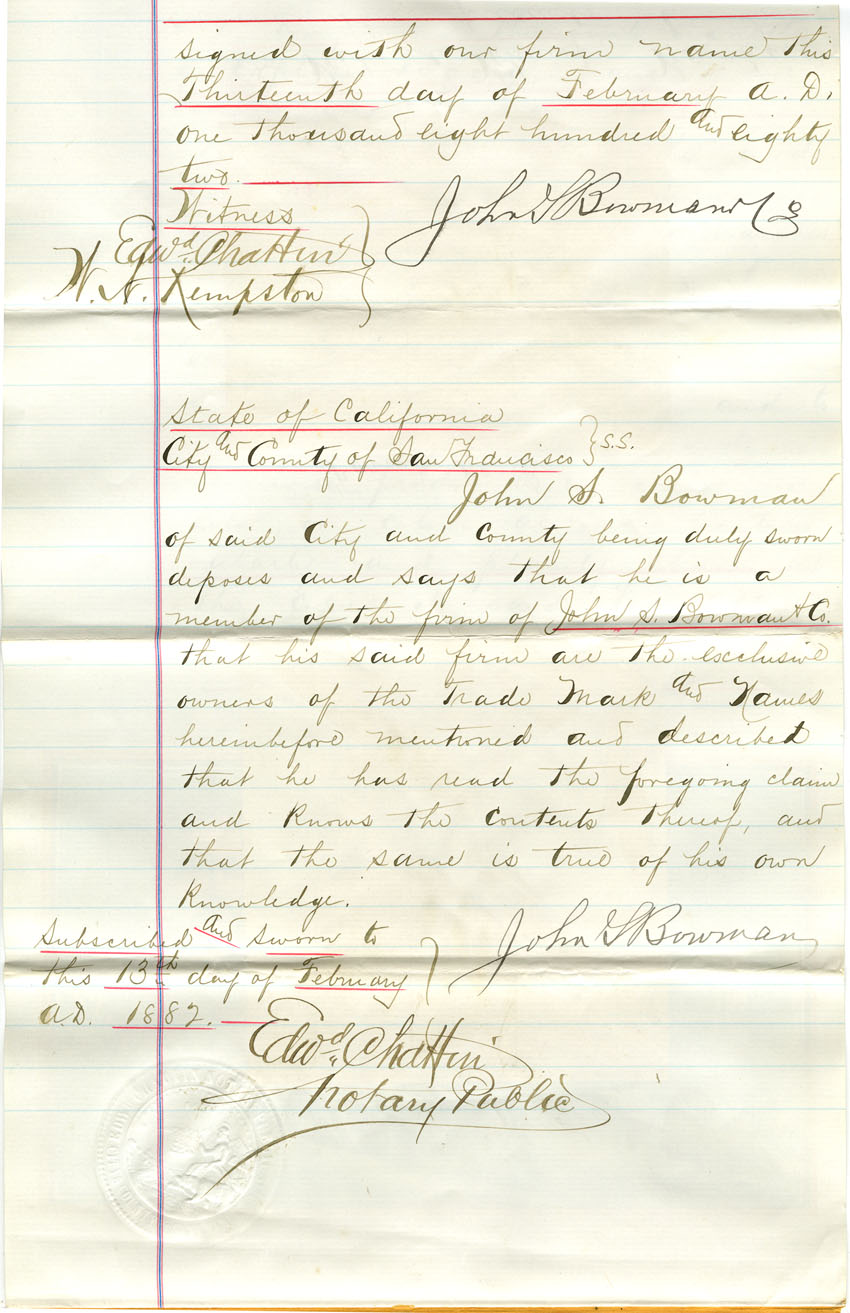 signed with our firm name this
Thirteenth day of February A. D.
one thousand eight hundred and eighty
two.
Witness
John S Bowman & Co
Edwd. Chattin
W. N. Kempston
State of California
City and County of San Francisco } S.S.
John S. Bowman
of said City and County being duly sworn
deposes and says that he is a
member of the firm of John S. Bowman & Co.
that his said firm are the exclusive
owners of the Trade Mark and Names
hereinbefore mentioned and described
that he has read the foregoing claim
and Knows the Contents thereof, and
that the same is true of his own
Knowledge.
Subscribed and sworn to
John S Bowman
this 13th day of February
A.D. 1882.
Edwd. Chattin
Notary Public